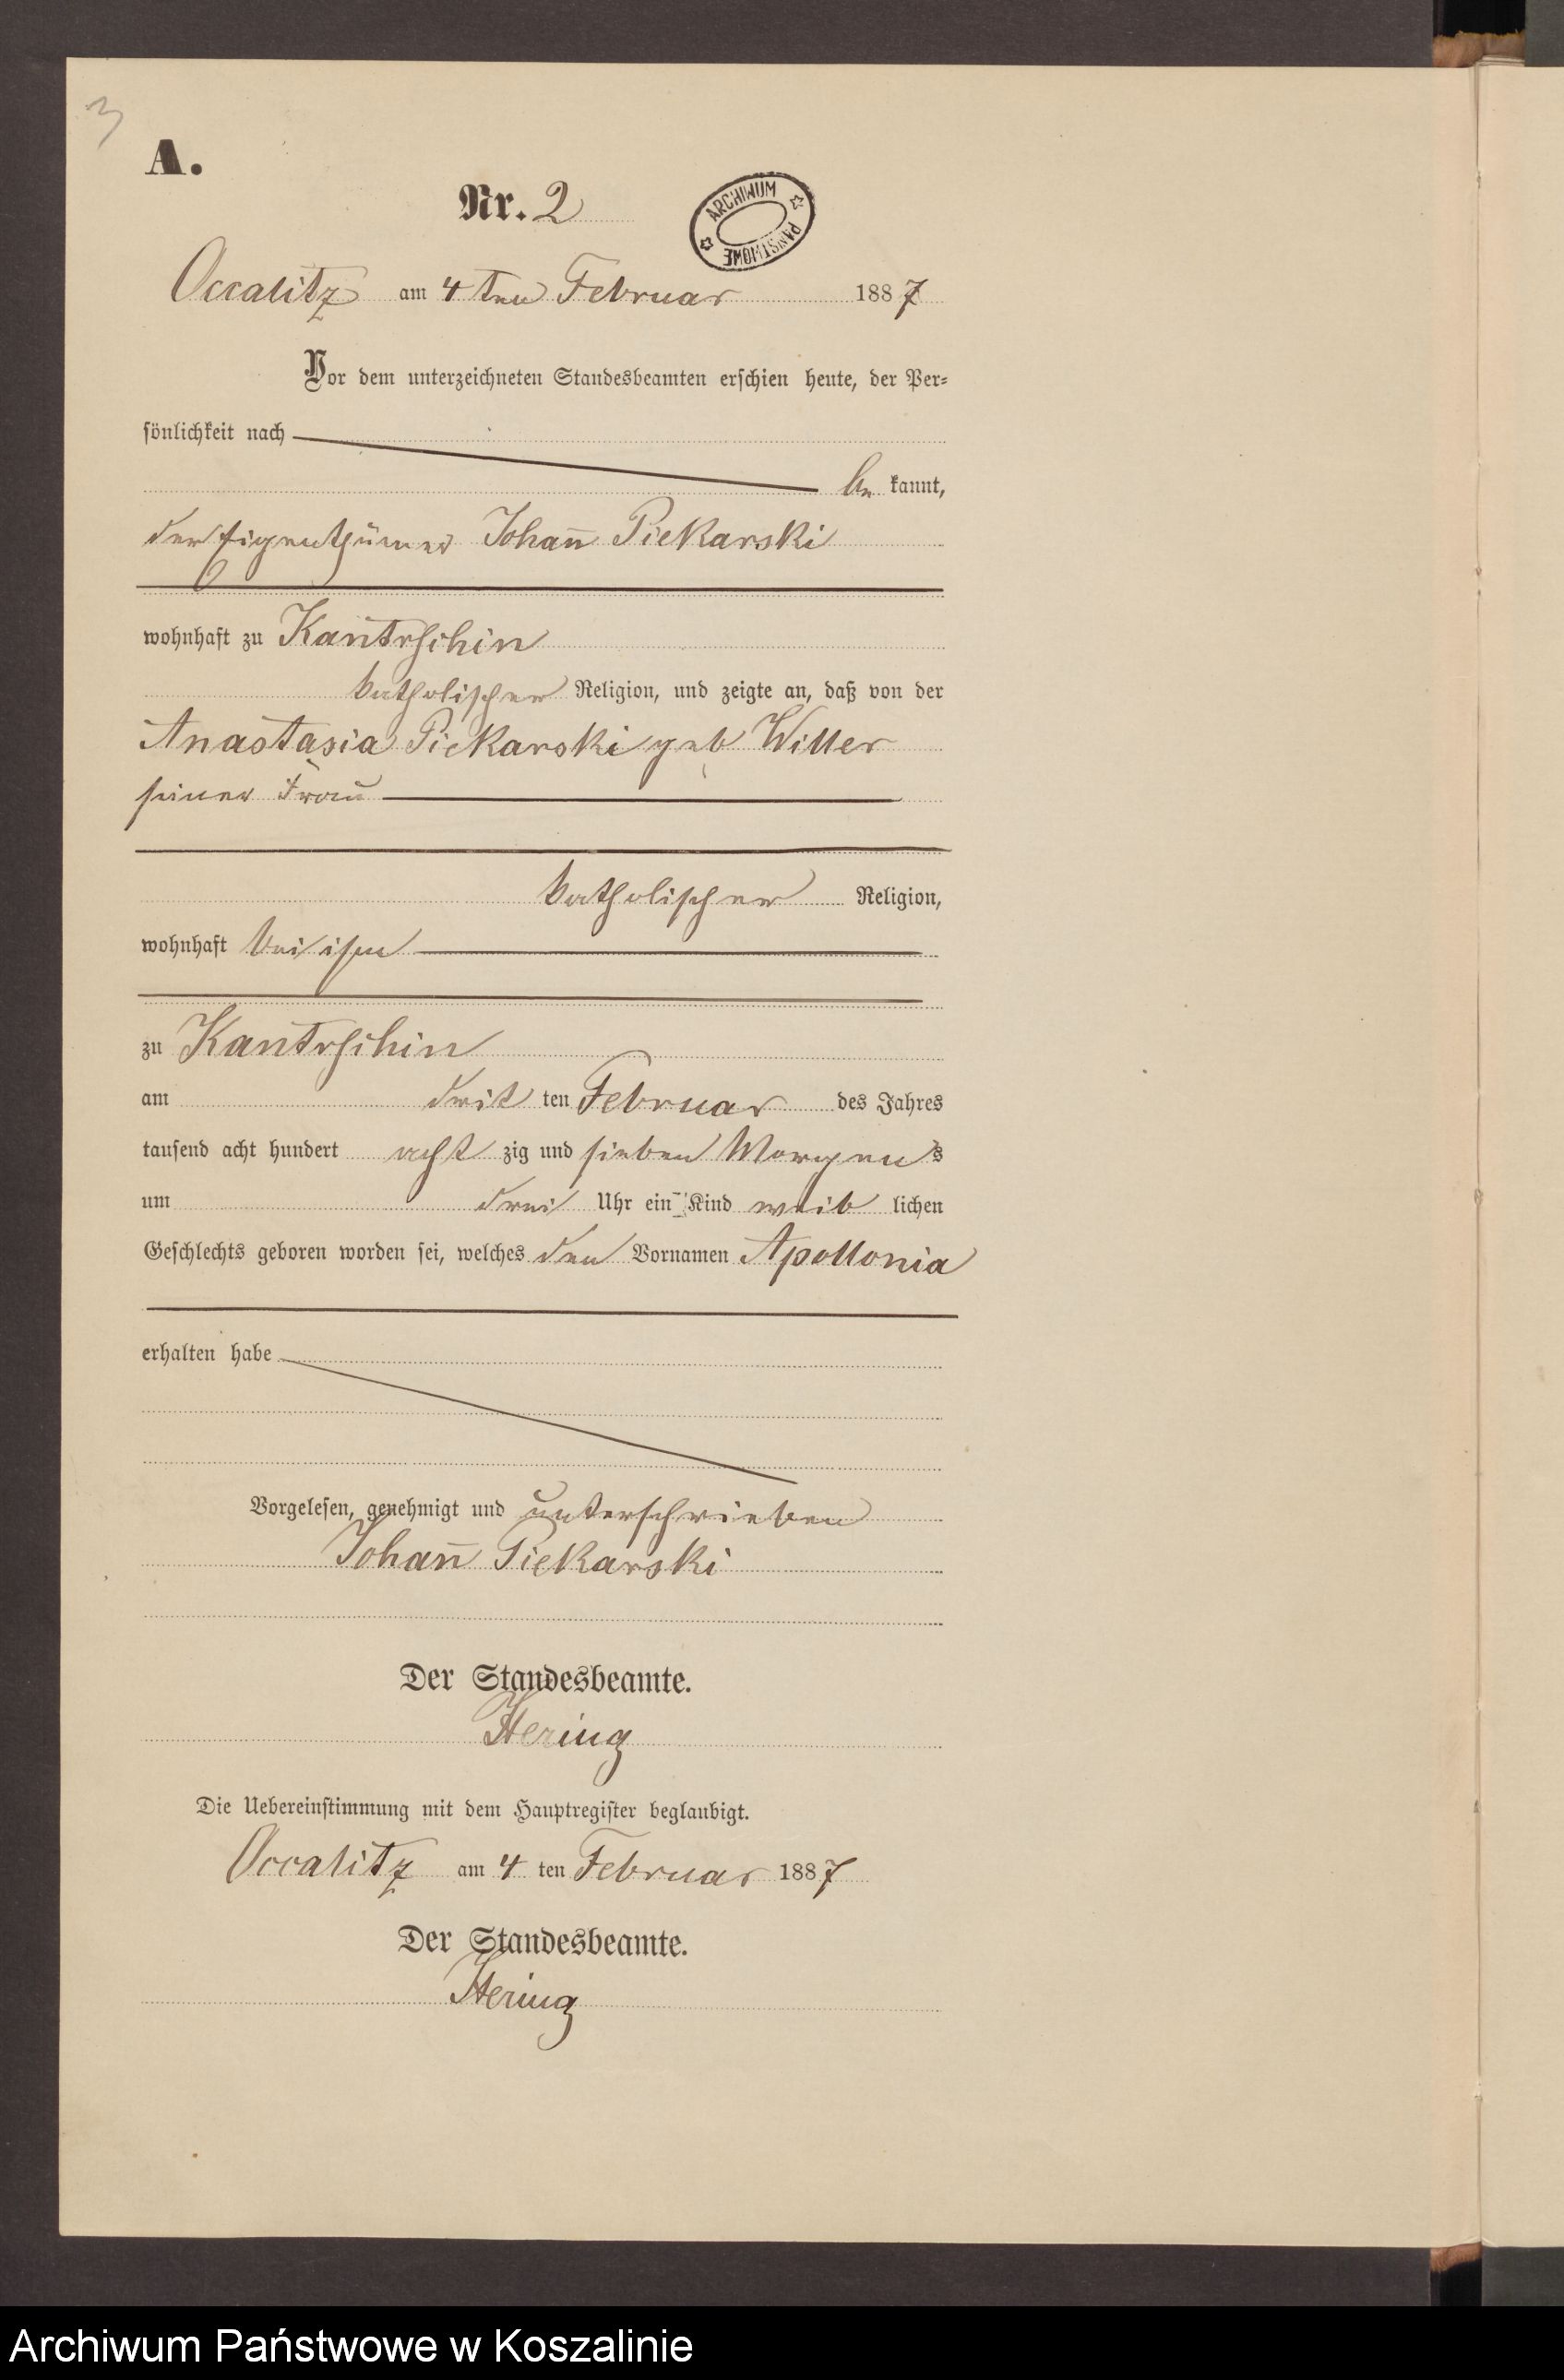 3
A.
Nr. 2
ARCHIWUM PAŃSTWOWE
Occalitz am 4 ten Februar 1887
Vor dem unterzeichneten Standesbeamten erschien heute, der Per-
sönlichkeit nach
be kannt,
der Eigenthümer Johann̄ Piekarski
wohnhaft zu Kantrschin
katholischer Religion, und zeigte an, daß von der
Anastasia Piekarski geb Willer
seiner Frau
katholischer Religion,
wohnhaft bei ihm
zu Kantrschin
am drit ten Februar des Jahres
tausend acht hundert acht zig und sieben Morgens
um drei Uhr ein Kind weib lichen
Geschlechts geboren worden sei, welches den Vornamen Apollonia
erhalten habe
Vorgelesen, genehmigt und unterschrieben
Johan̄ Piekarski
Der Standesbeamte.
Hering
Die Uebereinstimmung mit dem Hauptregister beglaubigt.
Occalitz am 4 ten Februar 1887
Der Standesbeamte.
Hering
Archiwum Państwowe w Koszalinie